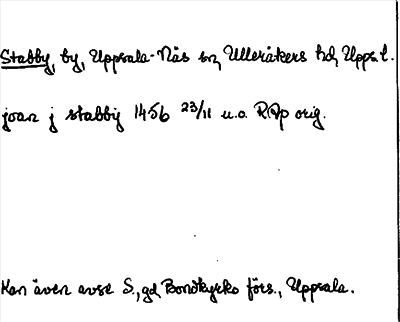 Stabby, by, Uppsala-Näs sn, Ulleråkers hd, Upps. l.
joan j stabby 1456 23/11 u.o. RAp orig.
Kan även avse S., gd, Bondkyrko förs., Uppsala.